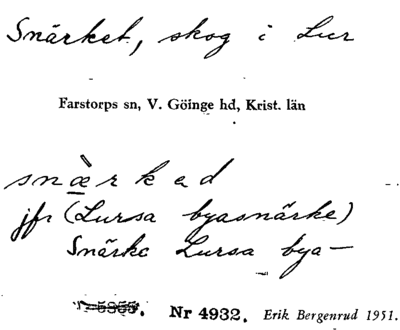 Snärket, skog i Lur
Farstorps sn, V. Göinge hd, Krist. län
snæ̀rkəd
jfr (Lursa byasnärke)
Snärke Lursa bya—
Nr 4932. Erik Bergenrud 1951.